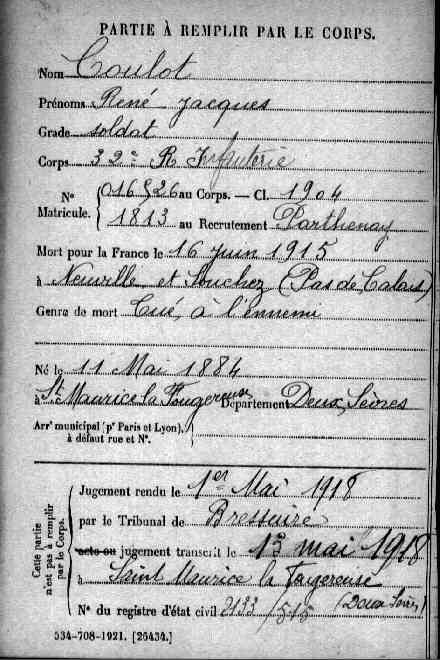 PARTIE À REMPLIR PAR LE CORPS.
Nom Coulot
Prénoms René Jacques
Grade soldat
Corps 32e R Infanterie
N° 016526 au Corps. — Cl. 1904
Matricule. 1813 au Recrutement Parthenay
Mort pour la France le 16 juin 1915
à Neuville et Souchez (Pas de Calais)
Genre de mort Tué à l'ennemi
Né le 11 Mai 1884
à St Maurice la Fougereuse Département Deux Sèvres
Arrt municipal (pr Paris et Lyon),
à défaut rue et N°.
Cette partie
n'est pas à remplir
par le Corps.
Jugement rendu le 1er Mai 1918
par le Tribunal de Bressuire
acte ou jugement transcrit le 13 mai 1918
à Saint Maurice la Fougereuse
N° du registre d'état civil (Deux Sèvres)
534-708-1921. [26434.]